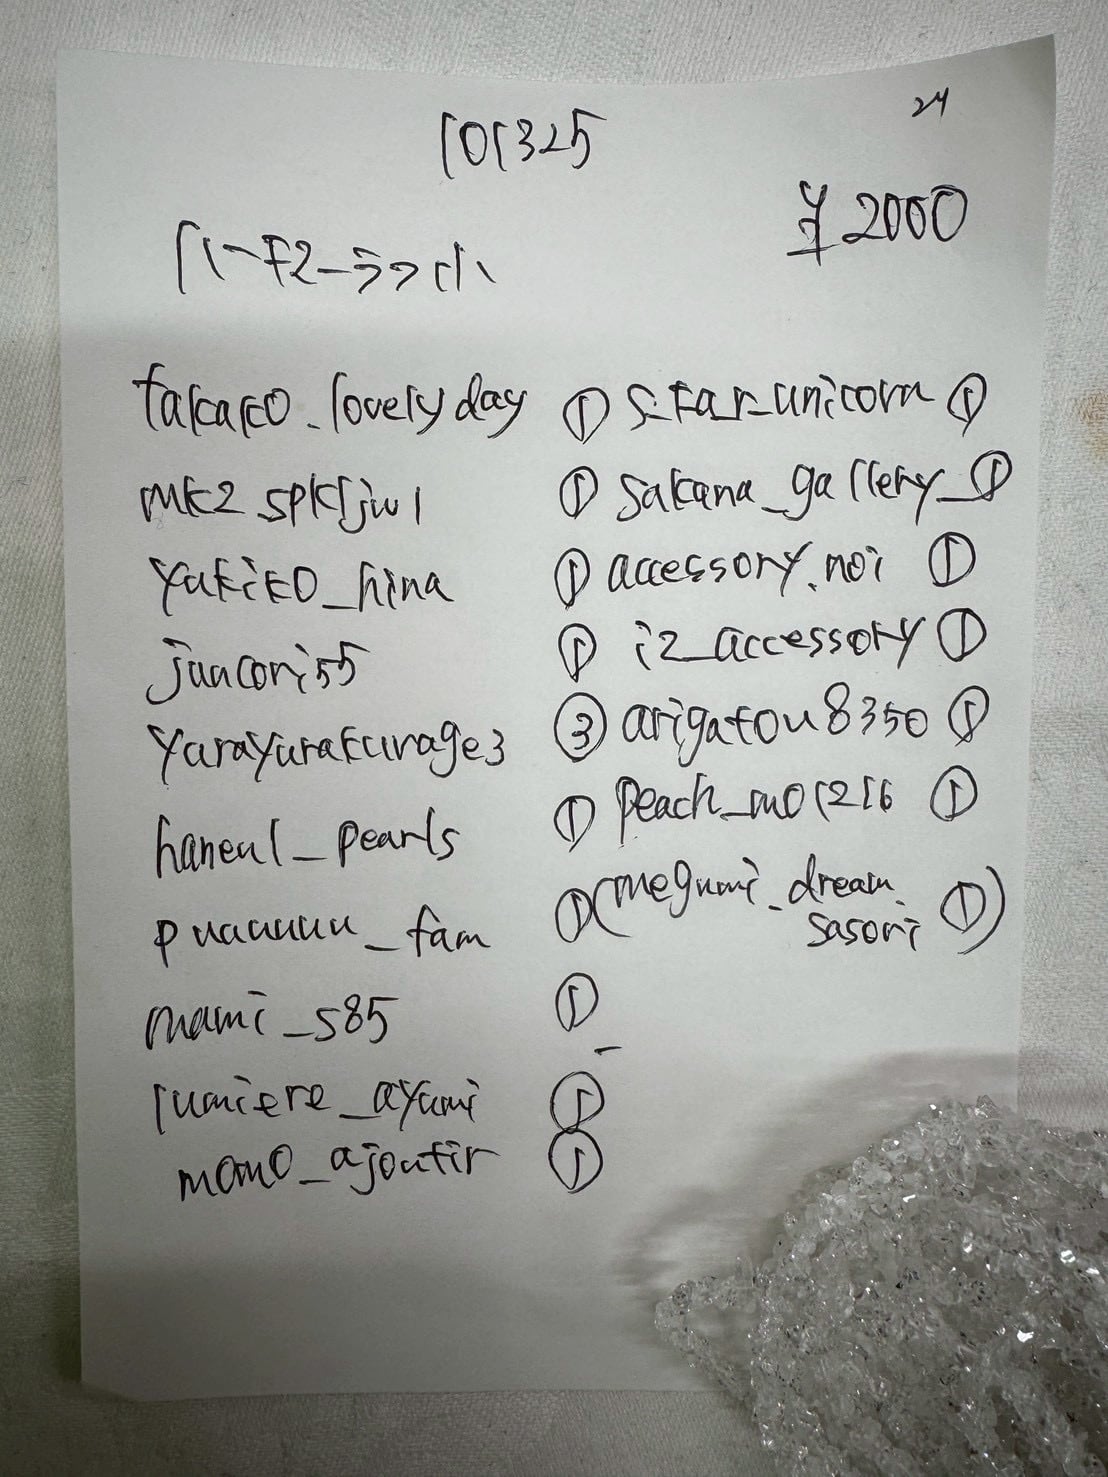 24
101325
¥2000
ハーキマーさざれ小
takako_lovelyday ①
mk2_spkljwl ①
yukiko_hina ①
juncori55 ①
yurayurakurage3 ③
haneul_pearls ①
puauuuu_fam ①
mami_s85 ①
lumiere_ayumi ①
momo_ajoutir ①
s.tar_unicorn ①
sakana_gallery_ ①
accessory.noi ①
iz_accessory ①
arigatou8350 ①
peach_mo1216 ①
(megumi_dream.
sasori ①)